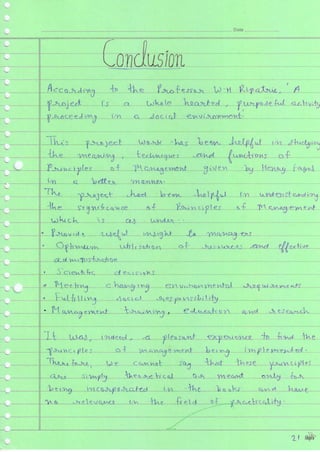 Date
Conclusion
According to the Professor W.H Kipatric, "A
project is a whole hearted, purposeful activity
proceeding in a social environment.
This project work has been helpful in studying
the meaning, techniques and functions of
Principles of Management given by Henry Fayol
in a better manner.
The project had been helpful in understanding
the significance of Principles of Management
which is as under :-
• Provide useful insight to managers
• Optimum utilisation of resources and effective
administration
• Scientific decisions
• Meeting changing environmental requirements
• Fulfilling social responsibility
• Management training, education and research
It was, indeed, a pleasant experience to find the
principles of management being implemented.
Therefore, we cannot say that these principles
are simply theoretical or meant only for
being incorporated in the books and have
no relevance in the field of practicality.
21